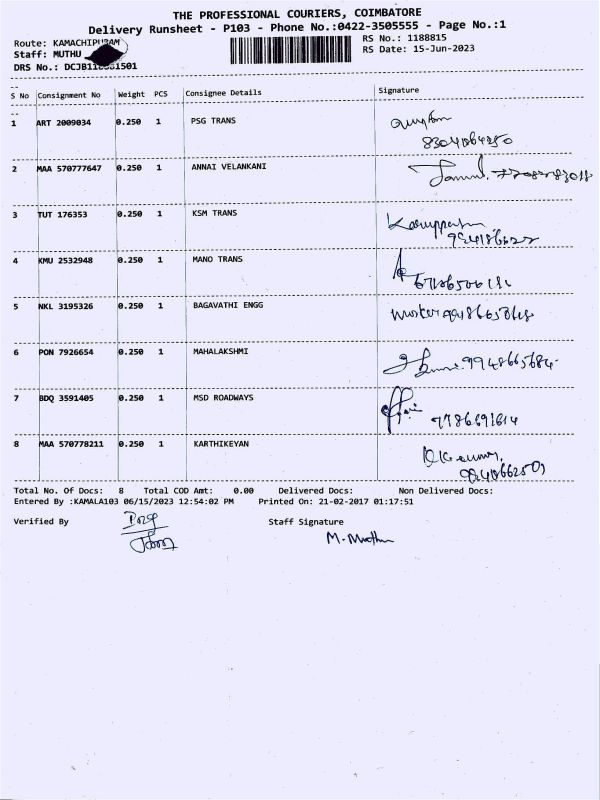 THE PROFESSIONAL COURIERS, COIMBATORE
Delivery Runsheet - P103 - Phone No.:0422-3505555 - Page No.:1
Route: KAMACHIPURAM RS No.: 1188815
Staff: MUTHU RS Date: 15-Jun-2023
DRS No.:
S No Consignment No Weight PCS Consignee Details Signature
1 ART 2009034 0.250 1 PSG TRANS
2 MAA 570777647 0.250 1 ANNAI VELANKANI
3 TUT 176353 0.250 1 KSM TRANS
4 KMU 2532948 0.250 1 MANO TRANS
5 NKL 3195326 0.250 1 BAGAVATHI ENGG
6 PON 7926654 0.250 1 MAHALAKSHMI
7 BDQ 3591405 0.250 1 MSD ROADWAYS
8 MAA 570778211 0.250 1 KARTHIKEYAN
Total No. Of Docs: 8 Total COD Amt: 0.00 Delivered Docs: Non Delivered Docs:
Entered By :KAMALA103 06/15/2023 12:54:02 PM Printed On: 21-02-2017 01:17:51
Verified By Staff Signature
M. Muthu